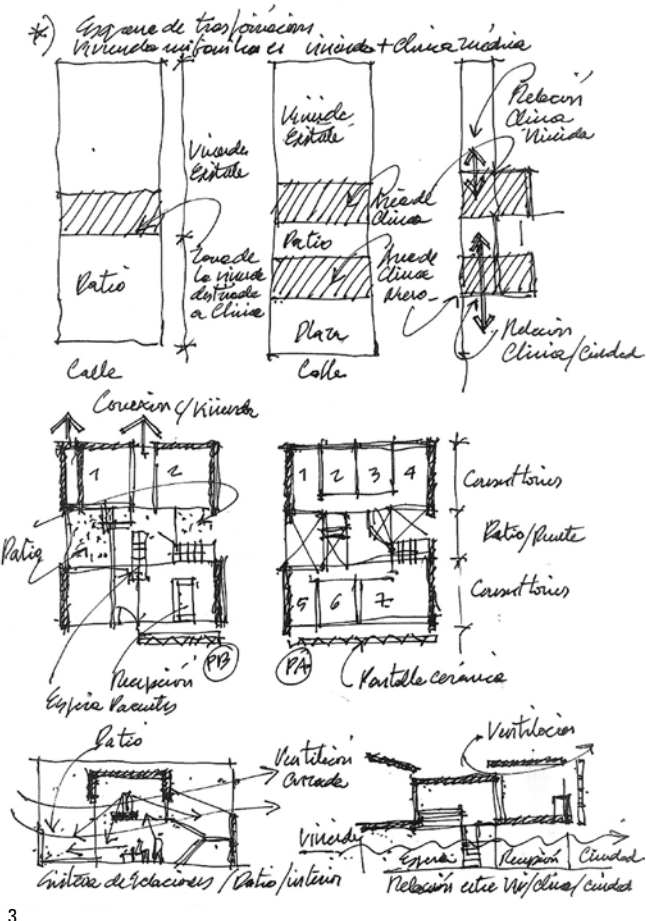 *) Esquema de trasformación
Vivienda unifamiliar a vivienda + Clínica médica
Vivienda
Existente
Patio
Zona de
la vivienda
destinada
a Clínica
Calle
Vivienda
Existente
Área de
Clínica
Patio
Área de
Clínica
Plaza
Calle
Relación
Clínica
Vivienda
Relación
Clínica/Ciudad
Conexión c/Vivienda
1 2
Patio
Recepción
PB
Espera Pacientes
1 2 3 4
5 6 7
PA
Consultorios
Patio/Puente
Consultorios
Pantalla cerámica
Patio
Ventilación
Cruzada
Sistema de Relaciones / Patio/interior
Ventilación
Vivienda
Espera
Recepción
Ciudad
Relación entre Viv/clínica/ciudad
3